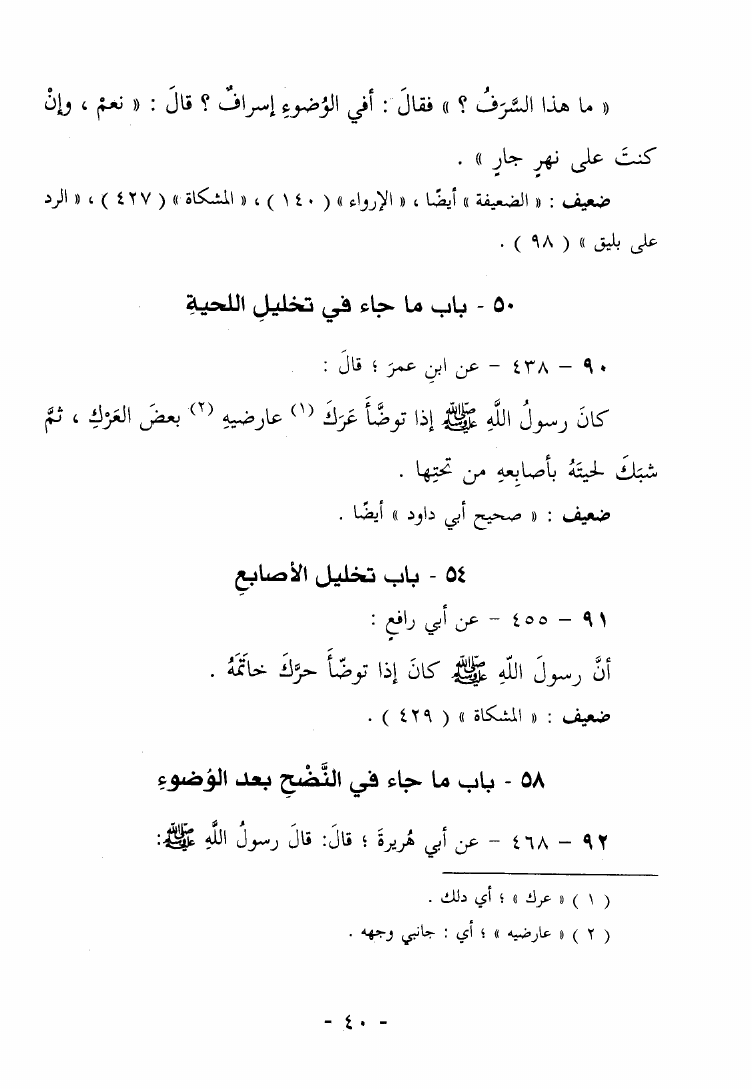 « ما هذا السَّرَفُ ؟ » فقالَ : أفي الوُضوءِ إسرافٌ ؟ قالَ : « نعمْ ، وإنْ
كنتَ على نهرٍ جارٍ » .
ضعيف : « الضعيفة » أيضًا ، « الإرواء » ( ١٤٠ ) ، « المشكاة » ( ٤٢٧ ) ، « الرد
على بليق » ( ٩٨ ) .
٥٠ - باب ما جاء في تخليلِ اللحيةِ
٩٠ – ٤٣٨ – عن ابنِ عمرَ ؛ قالَ :
كانَ رسولُ اللَّهِ ﷺ إذا توضَّأَ عَرَكَ (١) عارضيهِ (٢) بعضَ العَرْكِ ، ثمَّ
شبَكَ لحيتَهُ بأصابِعهِ من تحتِها .
ضعيف : « صحيح أبي داود » أيضًا .
٥٤ - باب تخليل الأصابعِ
٩١ – ٤٥٥ – عن أبي رافعٍ :
أنَّ رسولَ اللَّهِ ﷺ كانَ إذا توضّأَ حرَّكَ خاتَمَهُ .
ضعيف : « المشكاة » ( ٤٢٩ ) .
٥٨ - باب ما جاء في النَّضْحِ بعد الوُضوءِ
٩٢ – ٤٦٨ – عن أبي هُريرةَ ؛ قالَ: قالَ رسولُ اللَّهِ ﷺ:
( ١ ) « عرك » ؛ أي دلك .
( ٢ ) « عارضيه » ؛ أي : جانبي وجهه .
- ٤٠ -